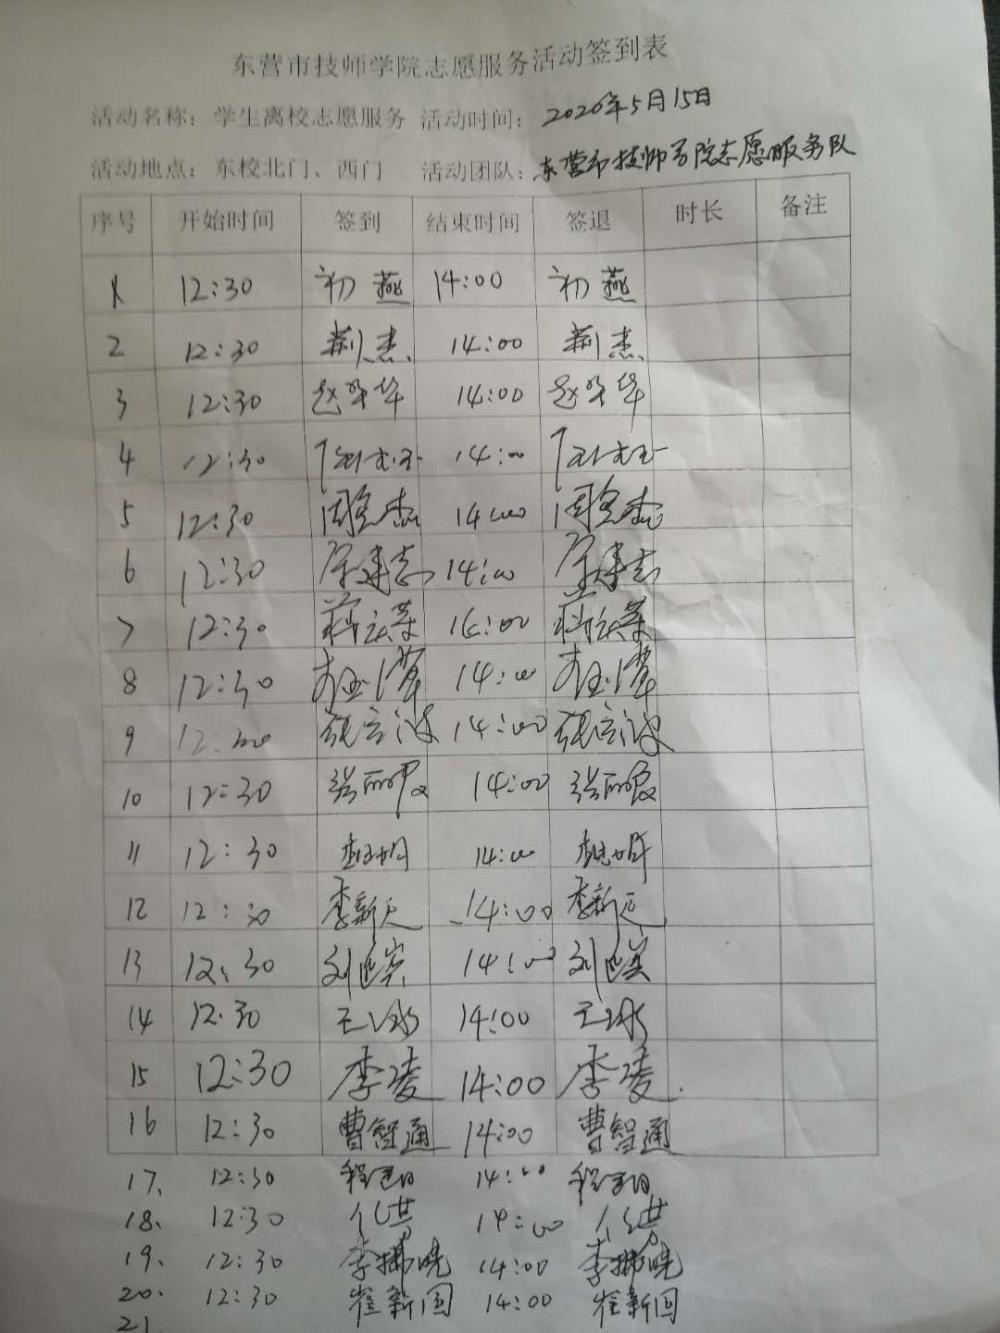 东营市技师学院志愿服务活动签到表
活动名称：学生离校志愿服务 活动时间：2020年5月15日
活动地点：东校北门、西门 活动团队：东营市技师学院志愿服务队
序号 开始时间 签到 结束时间 签退 时长 备注
1 12:30 初燕 14:00 初燕
2 12:30 荆杰 14:00 荆杰
3 12:30 赵 华 14:00 赵 华
4 12:30 14:00
5 12:30 周 杰 14:00 周 杰
6 12:30 建志 14:00 建志
7 12:30 蒋云荣 14:00 蒋云荣
8 12:30 14:00
9 12: 张立波 14:00 张立波
10 12:30 张丽 14:00 张丽
11 12:30 14:00
12 12:30 李新 14:00 李新
13 12:30 刘 14:00 刘
14 12:30 王 14:00 王
15 12:30 李凌 14:00 李凌
16 12:30 曹智通 14:00 曹智通
17、 12:30 程 14:00 程
18、 12:30 14:00
19、 12:30 李拂晓 14:00 李拂晓
20、 12:30 崔新国 14:00 崔新国
21